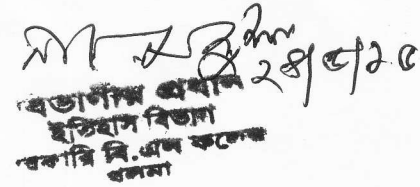 ২৪/৫/২৫
বিভাগীয় প্রধান
ইতিহাস বিভাগ
সরকারি বি.এল কলেজ
খুলনা